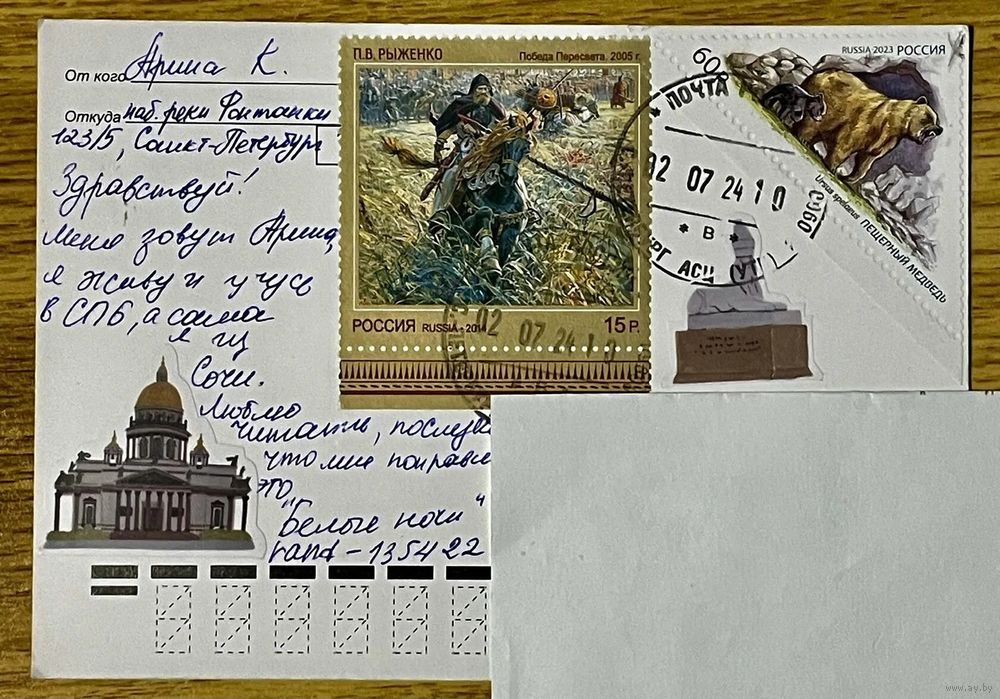 От кого Арина К.
Откуда наб. реки Фонтанки
123/5, Санкт-Петербург
Здравствуй!
Меня зовут Арина,
я живу и учусь
в СПб, а сама
я из
Сочи.
Люблю
читать, послед
что мне понрави
это
"Белые ночи"
rand-135422
П.В. РЫЖЕНКО
Победа Пересвета, 2005 г.
РОССИЯ RUSSIA • 2014 15 Р.
02 07 24 1 0
60
RUSSIA 2023 РОССИЯ
Ursus spelaeus ПЕЩЕРНЫЙ МЕДВЕДЬ
ПОЧТА
02 07 24 1 0
* В *
АСЦ
www.ay.by